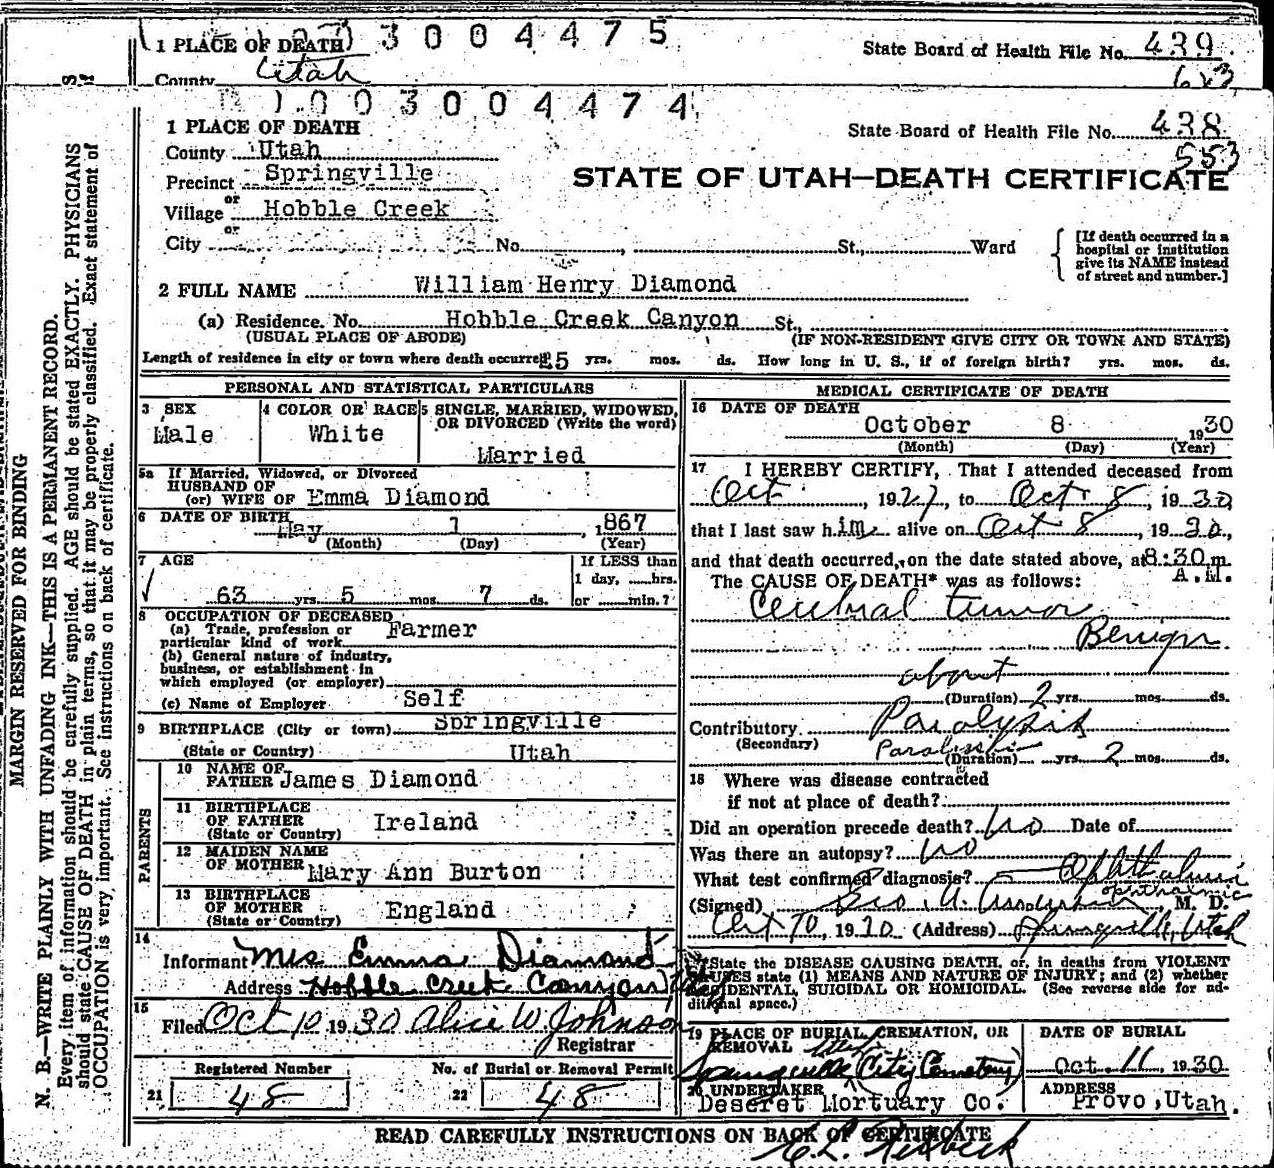 1 PLACE OF DEATH 3004475 State Board of Health File No. 439
County Utah 623
1003004474
1 PLACE OF DEATH State Board of Health File No. 438
County Utah 553
Precinct Springville STATE OF UTAH—DEATH CERTIFICATE
or
Village Hobble Creek
or
City No. , St., Ward [If death occurred in a hospital or institution give its NAME instead of street and number.]
2 FULL NAME William Henry Diamond
(a) Residence. No. Hobble Creek Canyon St.,
(USUAL PLACE OF ABODE) (IF NON-RESIDENT GIVE CITY OR TOWN AND STATE)
Length of residence in city or town where death occurred 25 yrs. mos. ds. How long in U. S., if of foreign birth? yrs. mos. ds.
PERSONAL AND STATISTICAL PARTICULARS
3 SEX
Male
4 COLOR OR RACE
White
5 SINGLE, MARRIED, WIDOWED,
OR DIVORCED (Write the word)
Married
5a If Married, Widowed, or Divorced
HUSBAND OF
(or) WIFE OF Emma Diamond
6 DATE OF BIRTH
May 1 , 1867
(Month) (Day) (Year)
7 AGE
63 yrs. 5 mos. 7 ds.
If LESS than
1 day, hrs.
or min.?
8 OCCUPATION OF DECEASED
(a) Trade, profession or
particular kind of work Farmer
(b) General nature of industry,
business, or establishment in
which employed (or employer)
(c) Name of Employer Self
9 BIRTHPLACE (City or town) Springville
(State or Country) Utah
PARENTS
10 NAME OF
FATHER James Diamond
11 BIRTHPLACE
OF FATHER
(State or Country) Ireland
12 MAIDEN NAME
OF MOTHER Mary Ann Burton
13 BIRTHPLACE
OF MOTHER
(State or Country) England
14
Informant Mrs Emma Diamond
Address Hobble Creek Canyon
15
Filed Oct 10 1930 Alice W Johnson
Registrar
Registered Number No. of Burial or Removal Permit
21 48 22 48
MEDICAL CERTIFICATE OF DEATH
16 DATE OF DEATH
October 8 1930
(Month) (Day) (Year)
17 I HEREBY CERTIFY, That I attended deceased from
Oct , 1927, to Oct 8, 1930,
that I last saw him alive on Oct 8 , 1930,
and that death occurred, on the date stated above, at 8:30 m.
A.M.
The CAUSE OF DEATH* was as follows:
Cerebral tumor
Benign
about
(Duration) 2 yrs. mos. ds.
Contributory Paralysis
(Secondary) (Duration) yrs. 2 mos. ds.
18 Where was disease contracted
if not at place of death?
Did an operation precede death? No Date of
Was there an autopsy? No
What test confirmed diagnosis?
ophthalmic
(Signed) M. D.
Oct 10, 1930 (Address) Springville, Utah
*State the DISEASE CAUSING DEATH, or, in deaths from VIOLENT
CAUSES state (1) MEANS AND NATURE OF INJURY; and (2) whether
ACCIDENTAL, SUICIDAL OR HOMICIDAL. (See reverse side for ad-
ditional space.)
19 PLACE OF BURIAL, CREMATION, OR
REMOVAL Utah
Springville (City Cemetery)
DATE OF BURIAL
Oct. 11 1930
20 UNDERTAKER
Deseret Mortuary Co.
ADDRESS
Provo, Utah.
READ CAREFULLY INSTRUCTIONS ON BACK OF CERTIFICATE
MARGIN RESERVED FOR BINDING
N. B.—WRITE PLAINLY WITH UNFADING INK—THIS IS A PERMANENT RECORD.
Every item of information should be carefully supplied. AGE should be stated EXACTLY. PHYSICIANS
should state CAUSE OF DEATH in plain terms, so that it may be properly classified. Exact statement of
OCCUPATION is very important. See instructions on back of certificate.